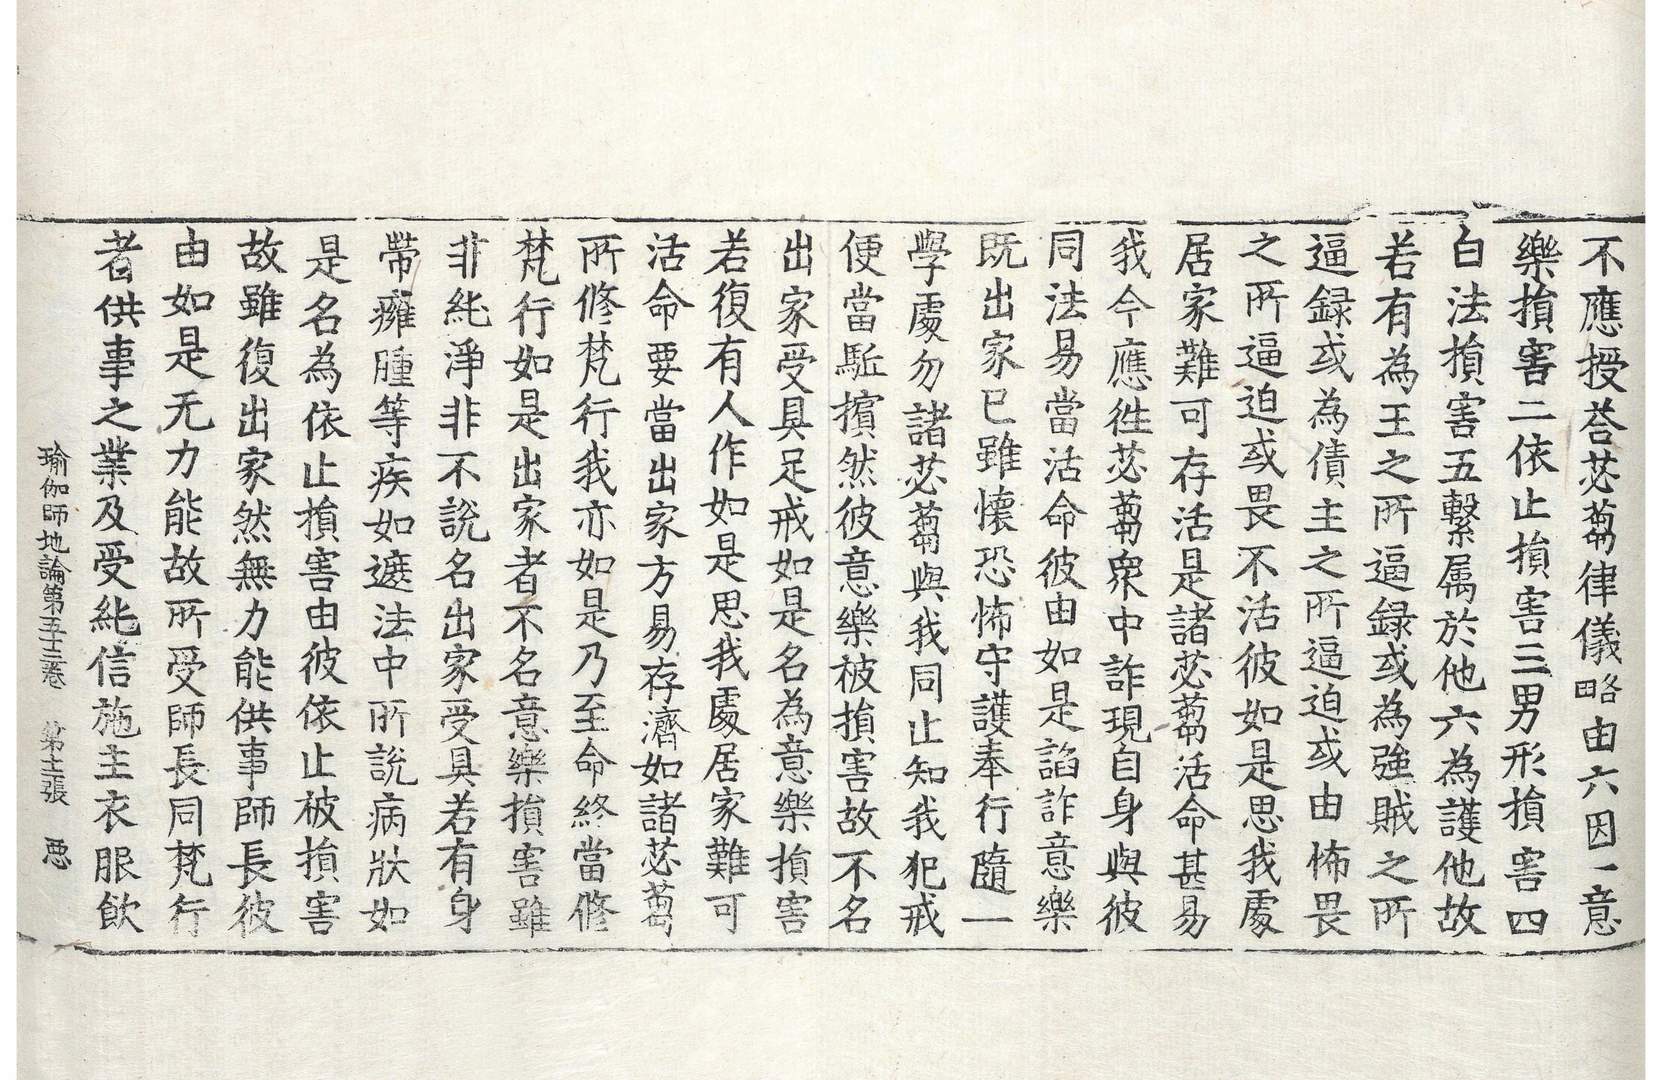 不應授荅苾蒭律儀略由六因一意
樂損害二依止損害三男形損害四
白法損害五繫属於他六為護他故
若有為王之所逼録或為強賊之所
逼録或為債主之所逼迫或由怖畏
之所逼迫或畏不活彼如是思我處
居家難可存活是諸苾蒭活命甚易
我今應徃苾蒭衆中詐現自身與彼
同法易當活命彼由如是諂詐意樂
既出家已雖懷恐怖守護奉行隨一
學處勿諸苾蒭與我同止知我犯戒
便當駈擯然彼意樂被損害故不名
出家受具足戒如是名為意樂損害
若復有人作如是思我處居家難可
活命要當出家方易存濟如諸苾蒭
所修梵行我亦如是乃至命終當修
梵行如是出家者不名意樂損害雖
非純淨非不說名出家受具若有身
帶癰腫等疾如遮法中所說病狀如
是名為依止損害由彼依止被損害
故雖復出家然無力能供事師長彼
由如是无力能故所受師長同梵行
者供事之業及受純信施主衣服飲
瑜伽師地論第五十三卷 第十二張 惡